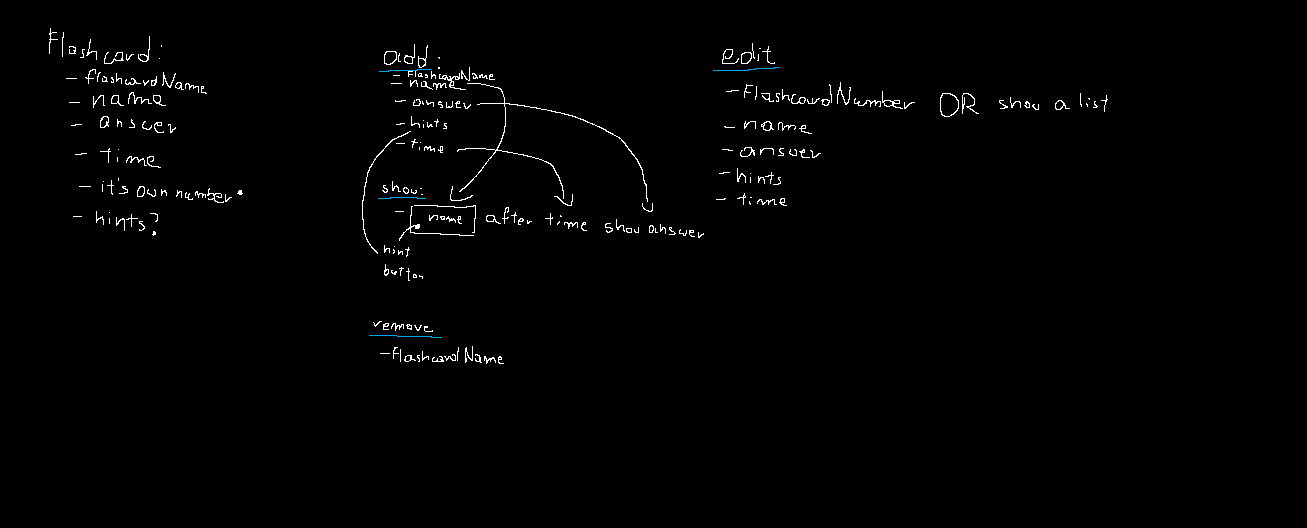 Flashcard:
- flashcardName
- name
- answer
- time
- it's own number*
- hints?
add:
- FlashcardName
- name
- answer
- hints
- time
show:
- name after time show answer
hint
button
remove
- FlashcardName
edit
- FlashcardNumber OR show a list
- name
- answer
- hints
- time